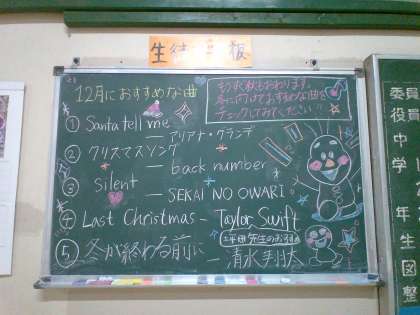 生徒 板
12月におすすめな曲
もうすぐ秋もおわります。
冬に向けておすすめな曲を
チェックしてみてください
① Santa tell me
アリアナ・グランデ
② クリスマスソング
— back number
③ Silent
— SEKAI NO OWARI
④ Last Christmas — Taylor Swift
先生のおすすめ
⑤ 冬が終わる前に
— 清水翔太
委員
役員
中
学
年
生
図
整